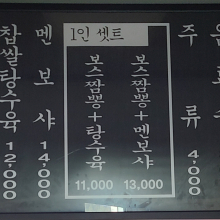 찹쌀탕수육 12,000
멘보샤 14,000
1인 셋트
보스짬뽕+탕수육 11,000
보스짬뽕+멘보샤 13,000
주류 4,000